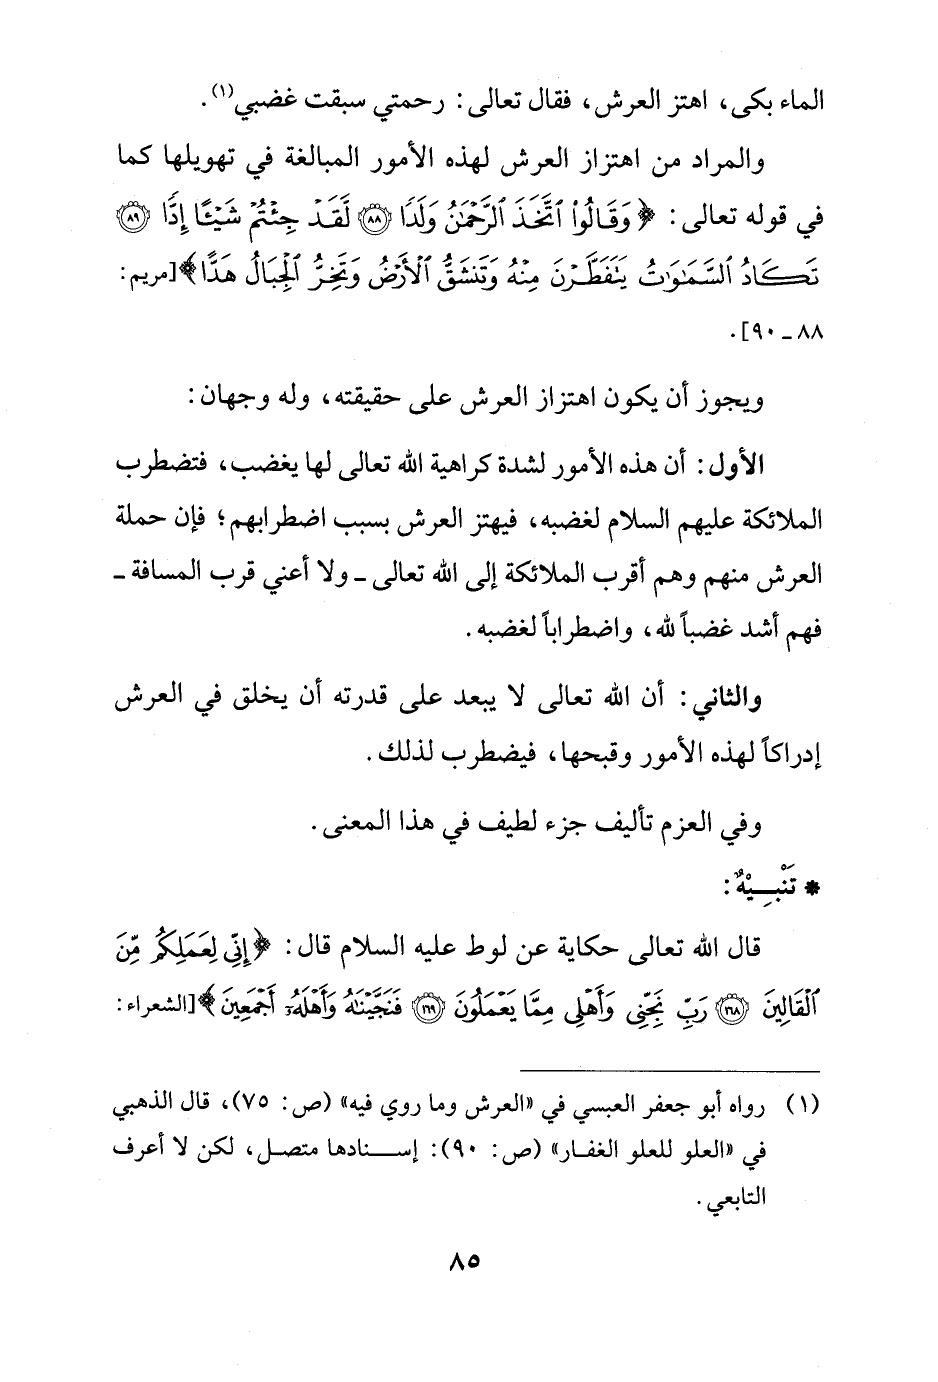 الماء بكى، اهتز العرش، فقال تعالى: رحمتي سبقت غضبي(١).
والمراد من اهتزاز العرش لهذه الأمور المبالغة في تهويلها كما
في قوله تعالى: ﴿وَقَالُوا۟ ٱتَّخَذَ ٱلرَّحْمَٰنُ وَلَدًا ۝٨٨ لَّقَدْ جِئْتُمْ شَيْـًٔا إِدًّا ۝٨٩
تَكَادُ ٱلسَّمَٰوَٰتُ يَتَفَطَّرْنَ مِنْهُ وَتَنشَقُّ ٱلْأَرْضُ وَتَخِرُّ ٱلْجِبَالُ هَدًّا﴾[مريم:
٨٨ ـ ٩٠].
ويجوز أن يكون اهتزاز العرش على حقيقته، وله وجهان:
الأول: أن هذه الأمور لشدة كراهية الله تعالى لها يغضب، فتضطرب
الملائكة عليهم السلام لغضبه، فيهتز العرش بسبب اضطرابهم؛ فإن حملة
العرش منهم وهم أقرب الملائكة إلى الله تعالى ـ ولا أعني قرب المسافة ـ
فهم أشد غضباً لله، واضطراباً لغضبه.
والثاني: أن الله تعالى لا يبعد على قدرته أن يخلق في العرش
إدراكاً لهذه الأمور وقبحها، فيضطرب لذلك.
وفي العزم تأليف جزء لطيف في هذا المعنى.
* تَنْبِيْهٌ:
قال الله تعالى حكاية عن لوط عليه السلام قال: ﴿إِنِّى لِعَمَلِكُم مِّنَ
ٱلْقَالِينَ ۝١٦٨ رَبِّ نَجِّنِى وَأَهْلِى مِمَّا يَعْمَلُونَ ۝١٦٩ فَنَجَّيْنَٰهُ وَأَهْلَهُۥٓ أَجْمَعِينَ﴾[الشعراء:
(١) رواه أبو جعفر العبسي في «العرش وما روي فيه» (ص: ٧٥)، قال الذهبي
في «العلو للعلو الغفار» (ص: ٩٠): إسنادها متصل، لكن لا أعرف
التابعي.
٨٥